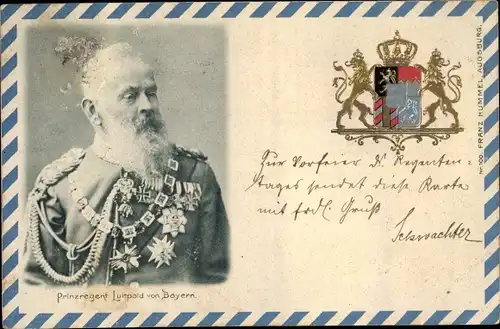 Prinzregent Luitpold von Bayern.
Nr. 100. FRANZ HUMMEL, AUGSBURG.
Zur Vorfeier d. Regenten-
tages sendet diese Karte
mit frdl. Gruß